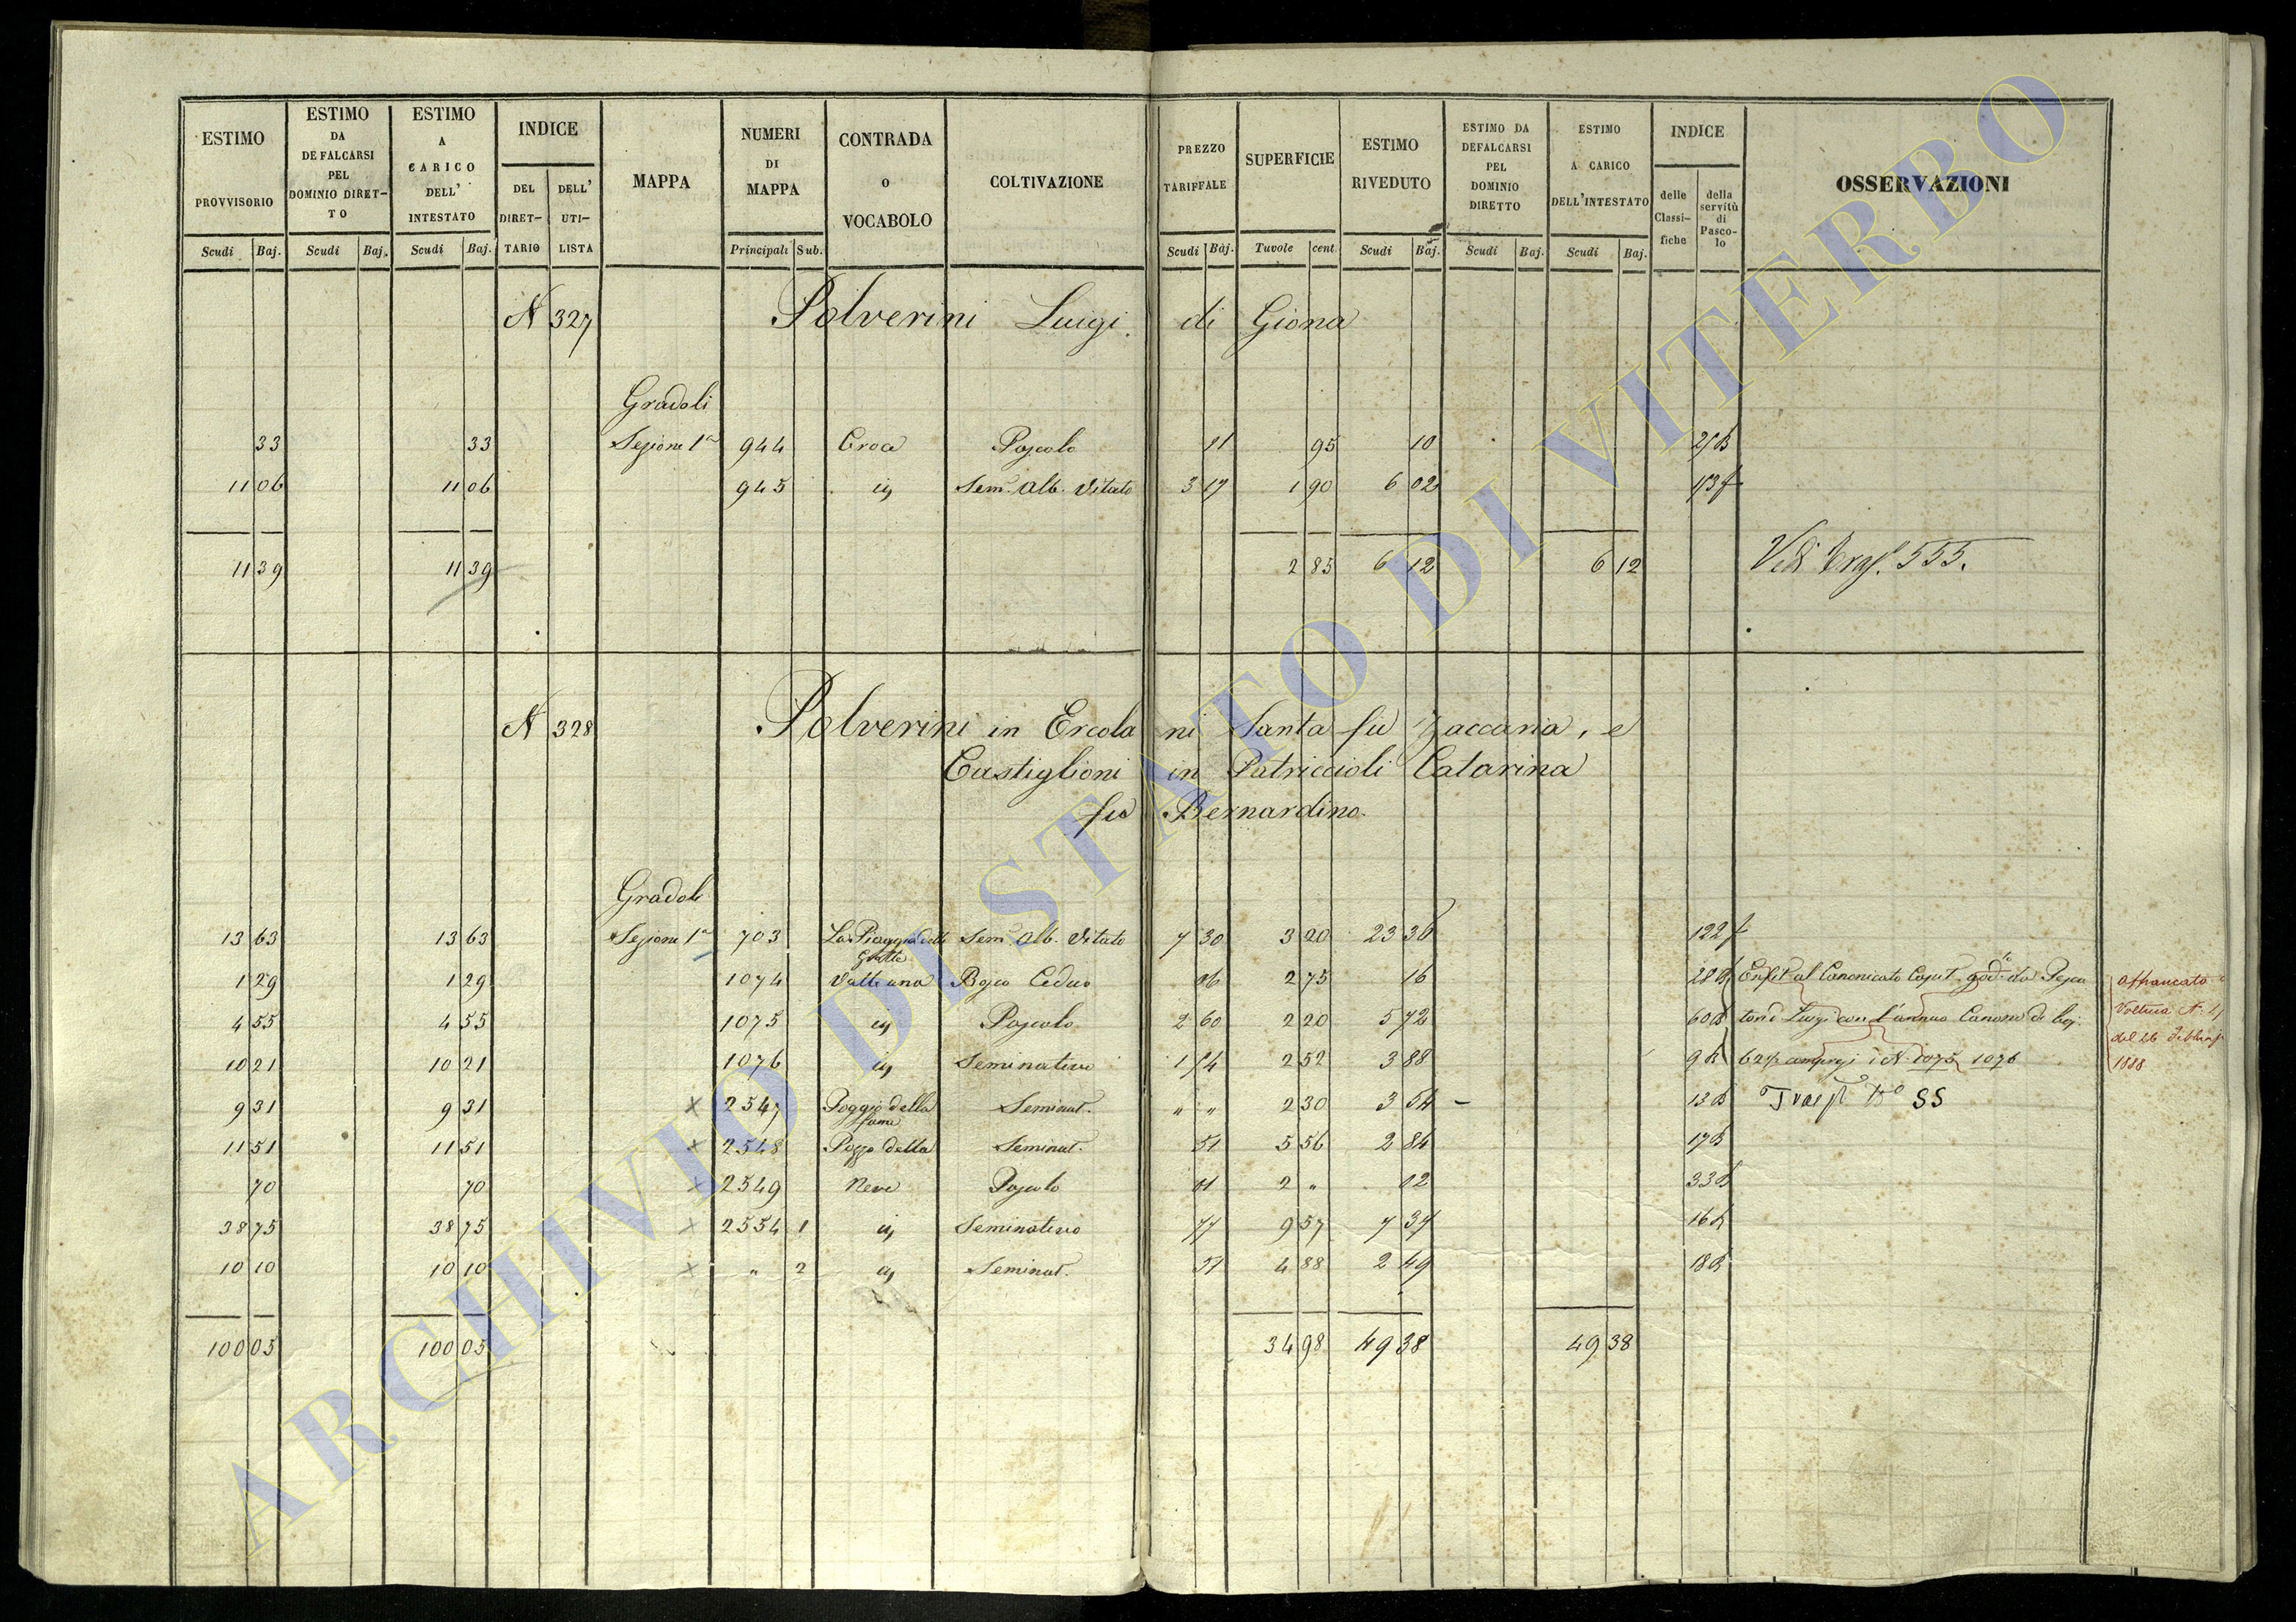 ESTIMO PROVVISORIO Scudi Baj.
ESTIMO DA DEFALCARSI PEL DOMINIO DIRETTO Scudi Baj.
ESTIMO A CARICO DELL' INTESTATO Scudi Baj.
INDICE DEL DIRETTARIO DELL' UTILISTA
MAPPA
NUMERI DI MAPPA Principali Sub.
CONTRADA O VOCABOLO
COLTIVAZIONE
PREZZO TARIFFALE Scudi Baj.
SUPERFICIE Tuvole cent.
ESTIMO RIVEDUTO Scudi Baj.
ESTIMO DA DEFALCARSI PEL DOMINIO DIRETTO Scudi Baj.
ESTIMO A CARICO DELL'INTESTATO Scudi Baj.
INDICE delle Classifiche della servitù di Pascolo
OSSERVAZIONI
N 327 Polverini Luigi di Giona
Gradoli
33 33 Sezione 1a 944 Croce Pascolo 11 95 10
11 06 11 06 945 Sem. Alb. Vitato 3 17 1 90 6 02
11 39 11 39 2 85 6 12 6 12 Vedi Trasp. 555.
N 328 Polverini in Ercolani Santa fu Zaccaria, e
Castiglioni in Patriccioli Catarina
fu Bernardino.
Gradoli
13 63 13 63 Sezione 1a 703 La Piaggia delle Grotte Sem. Alb. Vitato 7 30 3 20 23 36 122
1 29 1 29 1074 Bosco Ceduo 06 2 75 16 28 Enfit. al Canonicato
4 55 4 55 1075 Pascolo 2 60 2 20 5 72 60 Luigi con l'annuo Canone di baj.
10 21 10 21 1076 Seminativo 1 54 2 52 3 88 9 1075 1076
9 31 9 31 × 2547 Poggio della fame Seminat. " " 2 30 3 54 13 SS
11 51 11 51 × 2548 Pozzo della Seminat. 51 5 56 2 84 17
70 70 × 2549 Neve Pascolo 01 2 " 02 33
38 75 38 75 × 2554 1 Seminativo 77 9 57 7 37 16
10 10 10 10 × " 2 Seminat. 51 4 88 2 49 18
100 05 100 05 34 98 49 38 49 38
affrancato
Voltura N.
1888
ARCHIVIO DI STATO DI VITERBO